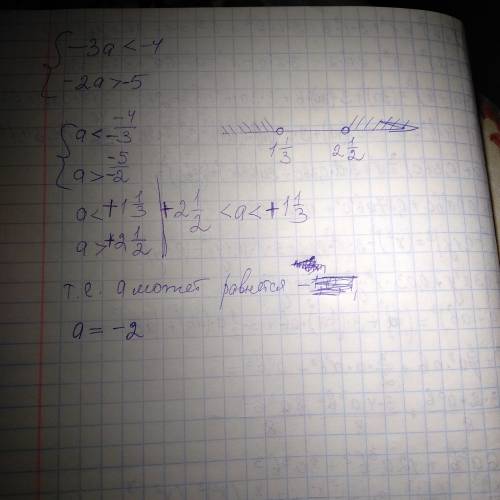 { -3a < -4
-2a > -5
{ a < -4/-3
a > -5/-2
1 1/3 2 1/2
a < +1 1/3 | +2 1/2 < a < +1 1/3
a > +2 1/2
т.е. a может равнятся -
a = -2